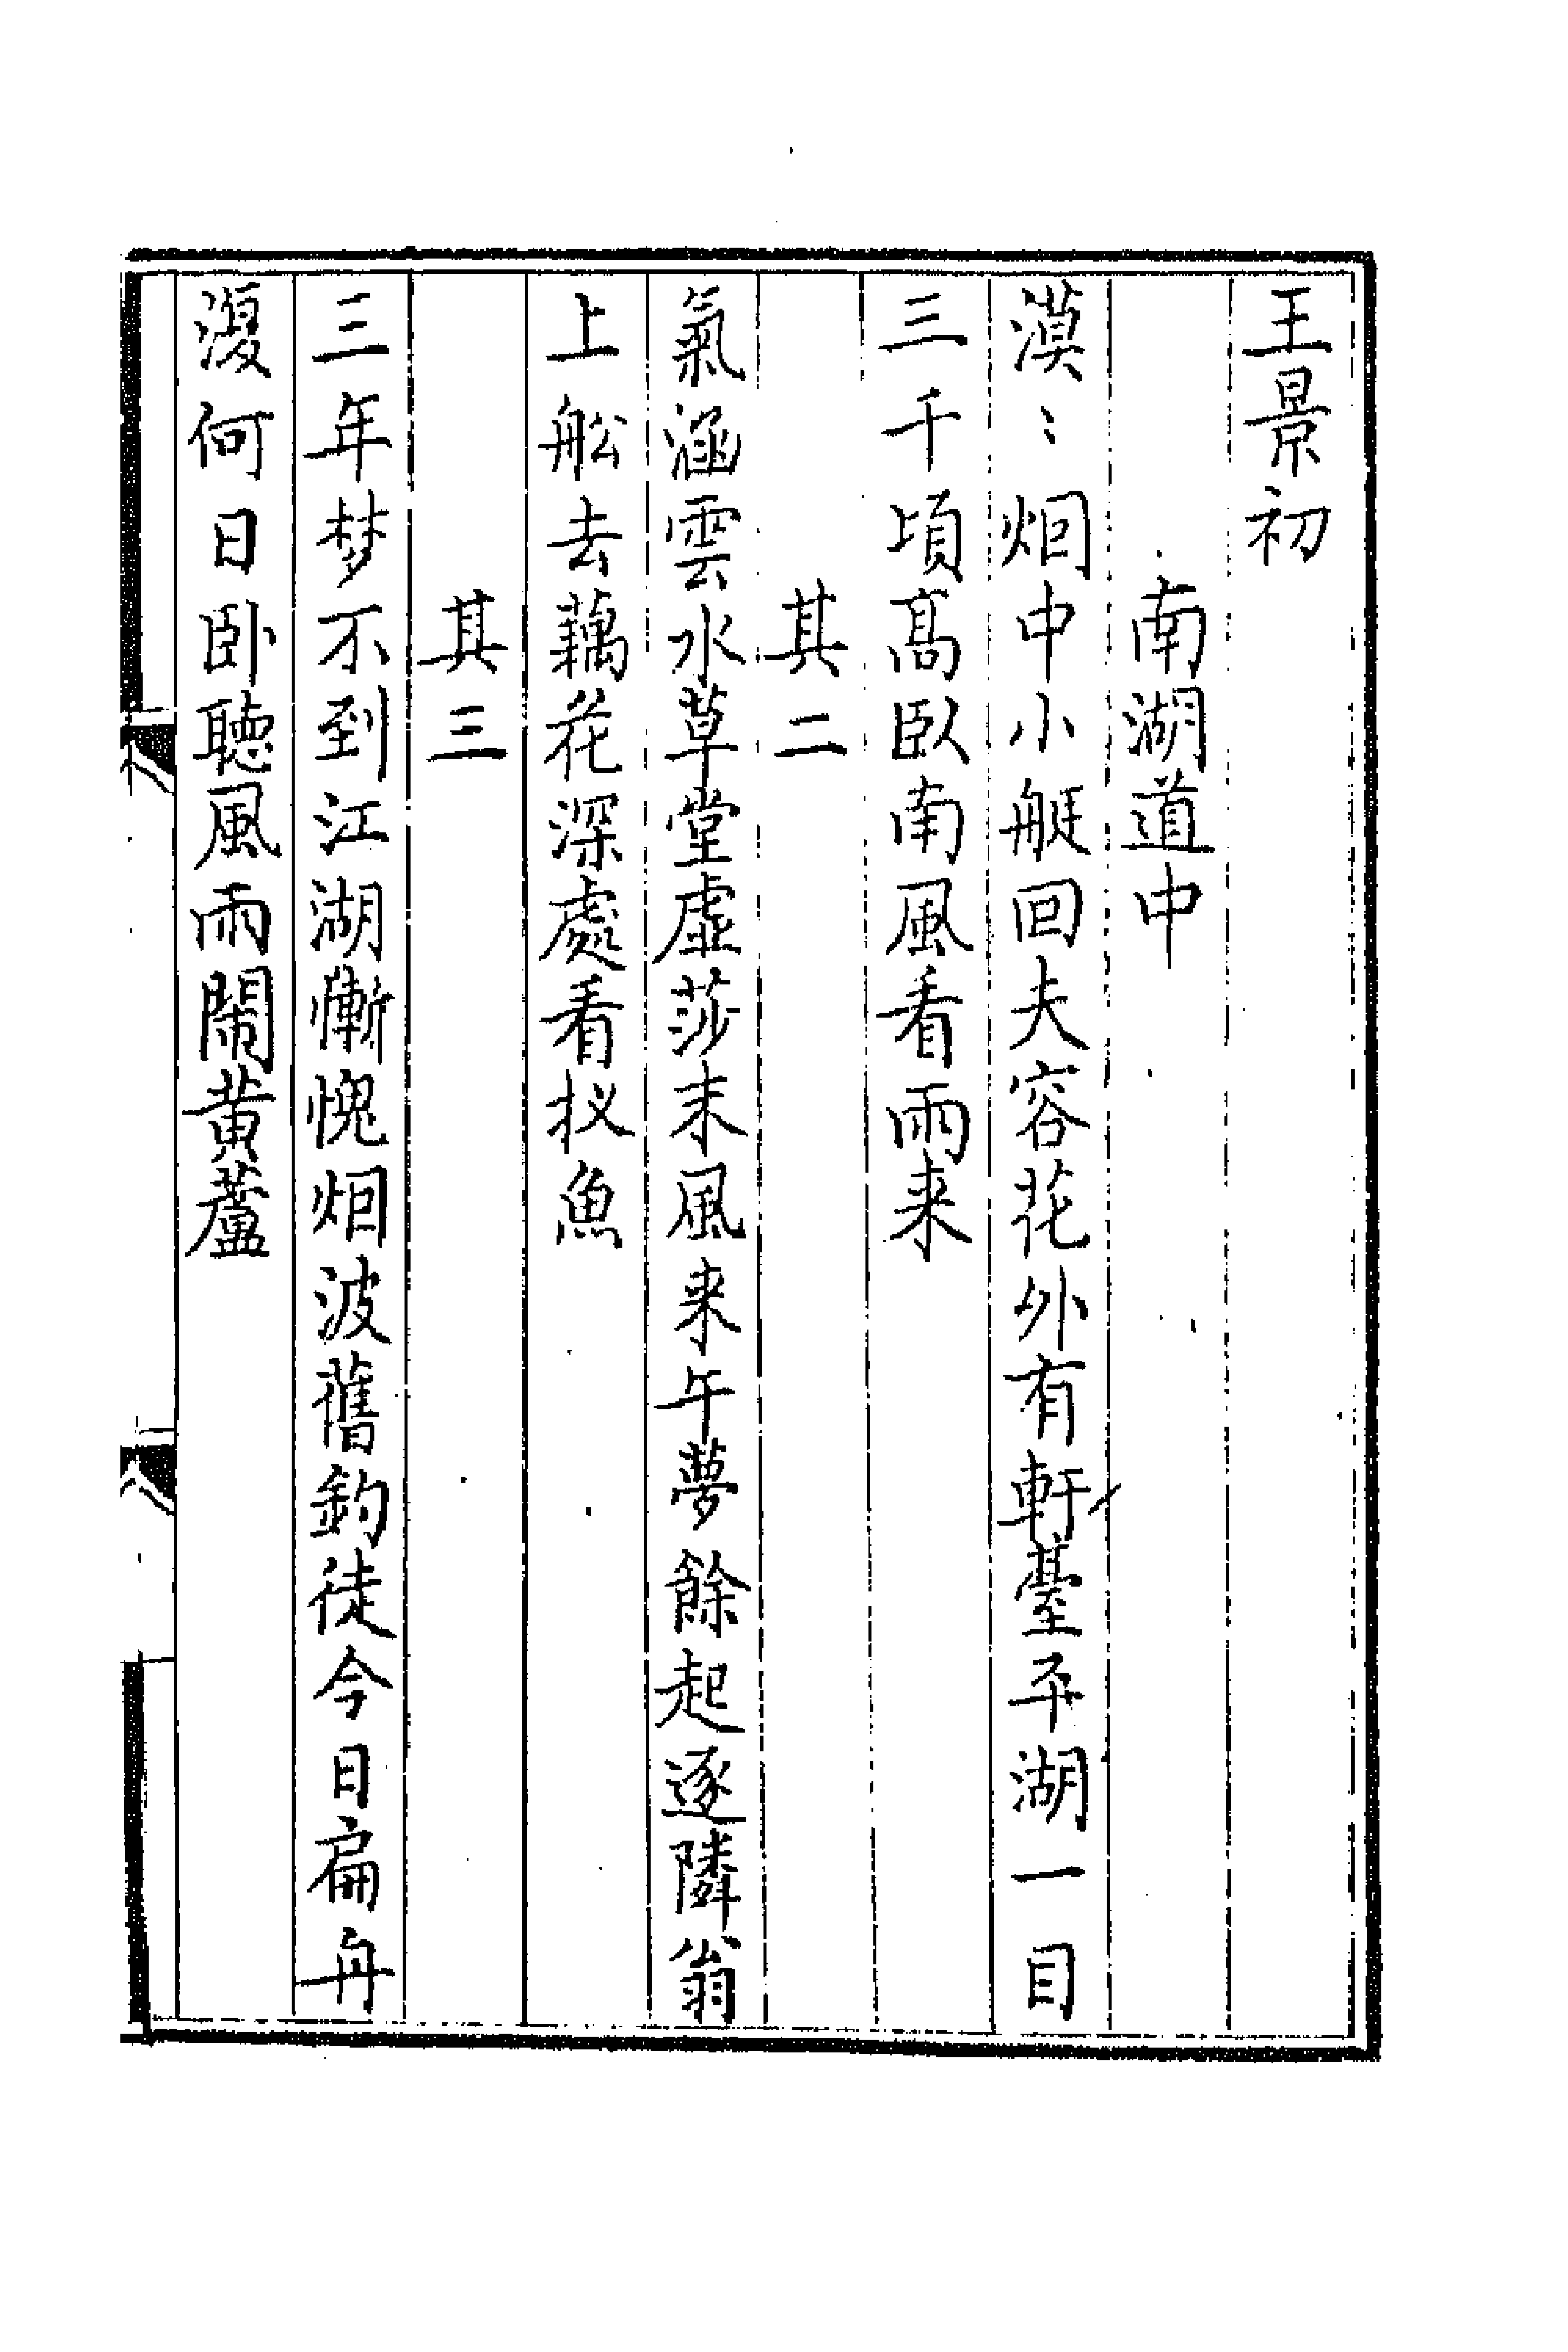 王景初
南湖道中
漠〻烟中小艇回夫容花外有軒䑓平湖一目
三千頃髙臥南風看雨来
其二
氣涵雲水草堂虛莎末風来午夢餘起逐隣翁
上舩去藕花深處看扠魚
其三
三年梦不到江湖慚愧烟波舊釣徒今日扁舟
澓何日卧聽風雨閙黄蘆